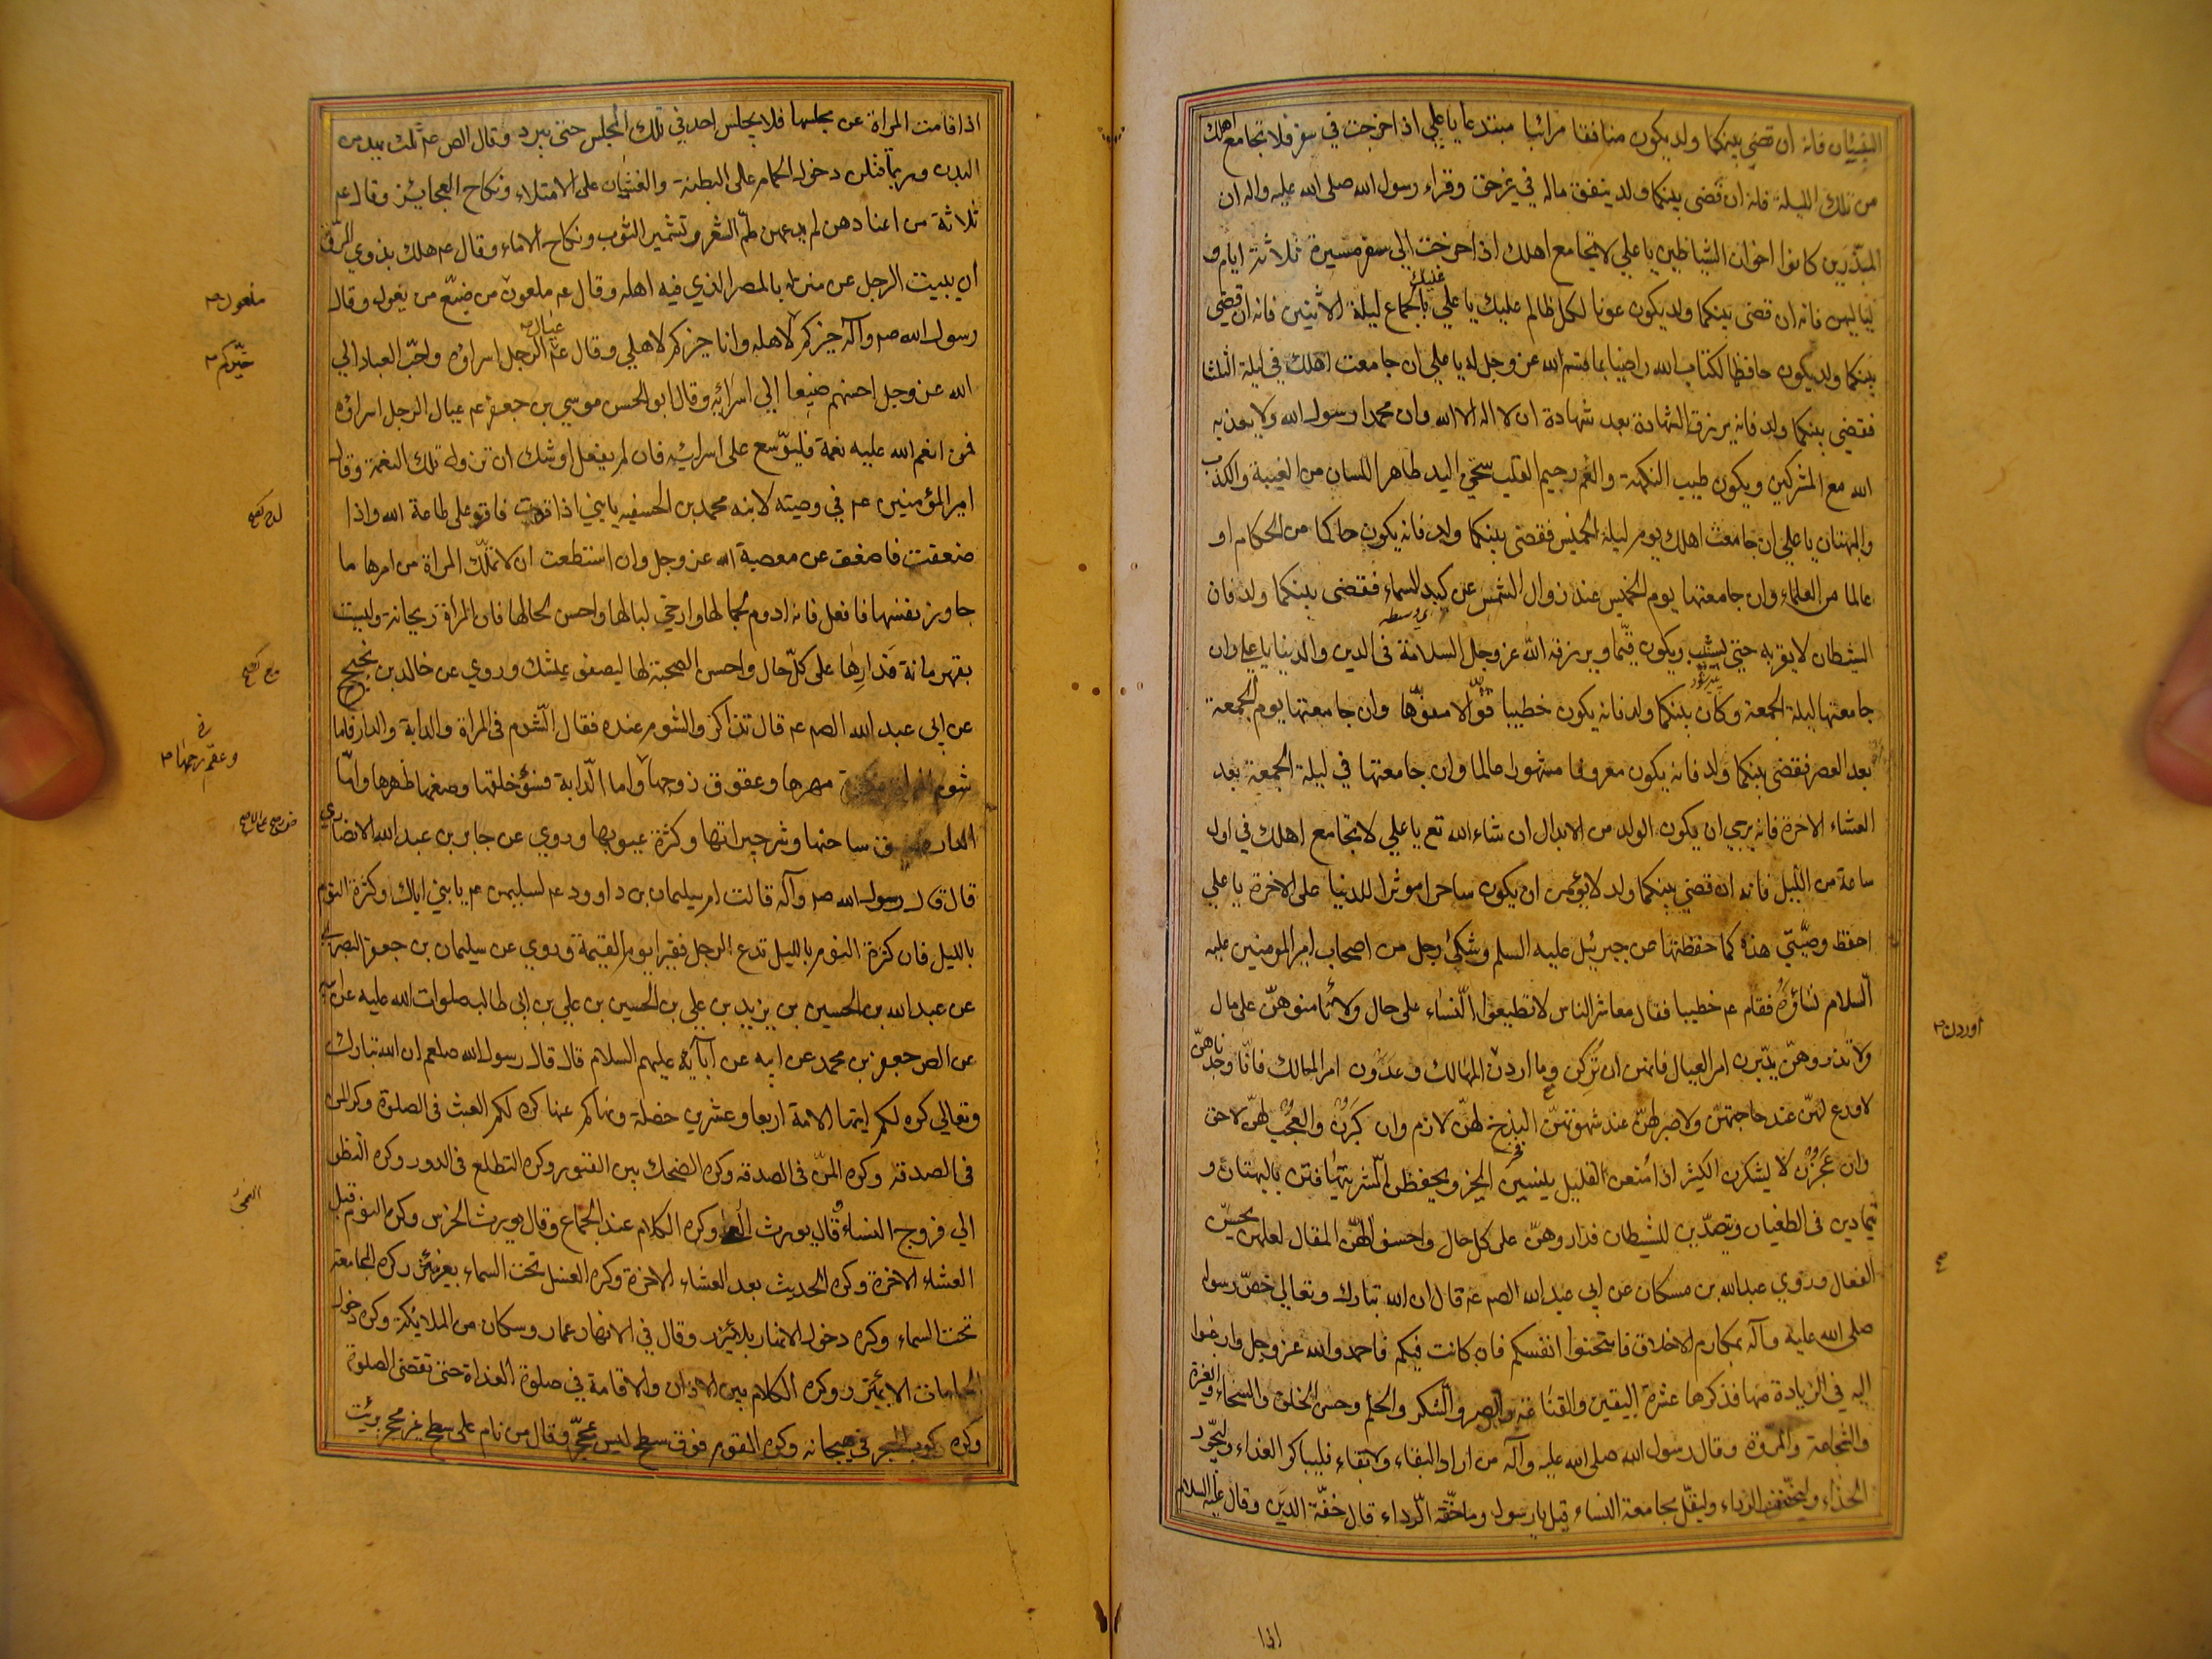 البنيان فانه ان قضى بينكما ولد يكون منافقا مرائيا مبتدعا يا علي اذا خرجت في سفر فلا تجامع اهلك
من تلك الليلة فانه ان قضى بينكما ولد ينفق ماله في غير حق وقراء رسول الله صلى الله عليه واله ان
المبذرين كانوا اخوان الشياطين يا علي لا تجامع اهلك اذا خرجت الى سفر مسيرة ثلاثة ايام و
لياليهن فانه ان قضى بينكما ولد يكون عونا لكل ظالم عليك يا علي عليك بالجماع ليلة الاثنين فانه ان قضى
بينكما ولد يكون حافظا لكتاب الله راضيا بما قسم الله عز وجل له يا علي ان جامعت اهلك في ليلة الثلثا
فقضي بينكما ولد فانه يرزق الشهادة بعد شهادة ان لا اله الا الله وان محمدا رسول الله ولا يعذبه
الله مع المشركين ويكون طيب النكهة والفم رحيم القلب سخي اليد طاهر اللسان من الغيبة والكذب
والبهتان يا علي ان جامعت اهلك يوم ليلة الخميس فقضى بينكما ولد فانه يكون حاكما من الحكام او
عالما من العلماء وان جامعتها يوم الخميس عند زوال الشمس عن كبد السماء فقضى بينكما ولد فان
اي وسطه
الشيطان لا يقربه حتى يشيب ويكون قيما ويرزقه الله عز وجل السلامة في الدين والدنيا يا علي وان
جامعتها ليلة الجمعة وكان بينكما ولد فانه يكون خطيبا قوالا مفوها وان جامعتها يوم الجمعة
بعد العصر فقضى بينكما ولد فانه يكون معروفا مشهورا عالما وان جامعتها في ليلة الجمعة بعد
العشاء الاخرة فانه يرجى ان يكون الولد من الابدال ان شاء الله تع يا علي لا تجامع اهلك في اول
ساعة من الليل فانه ان قضي بينكما ولد لا يؤمن ان يكون ساحرا موثرا للدنيا على الاخرة يا علي
احفظ وصيتي هذه كما حفظتها عن جبرئيل عليه السلم وشكى رجل من اصحاب امير المومنين عليه
السلام نساؤه فقام عم خطيبا فقال معاشر الناس لا تطيعوا النساء على حال ولا تامنوهن على مال
اوردن
ولا تذروهن يدبرن امر العيال فانهن ان تركن وما اردن المهالك وعدون امر المالك فانا وجدناهن
لا ورع لهن عند حاجتهن ولا صبر لهن عند شهوتهن البذخ لهن لازم وان كبرن والعجب لهن لاحق
وان عجزن لا يشكرن الكثير اذا منعن القليل ينسين الخير ويحفظن الشر يتهافتن بالبهتان و
يتمادين في الطغيان ويتصدين للشيطان فداروهن على كل حال واحسنوا لهن المقال لعلهن يحسن
الفعال وروي عبد الله بن مسكان عن ابي عبد الله الصم عم قال ان الله تبارك وتعالى خص رسوله
صلى الله عليه وآله بمكارم الاخلاق فامتحنوا انفسكم فان كانت فيكم فاحمدوا الله عز وجل وارغبوا
اليه في الزيادة منها فذكرها عشرة اليقين والقناعة والصبر والشكر والحلم وحسن الخلق والسخاء والغيرة
والشجاعة والمروة وقال رسول الله صلى الله عليه وآله من اراد البقاء ولا بقاء فليباكر الغذاء وليجود
الحذاء وليخفف الرداء وليقل مجامعة النساء قيل يا رسول وما خفة الرداء قال خفة الدين وقال عليه السلام
اذا
اذا قامت المراة عن مجلسها فلا يجلس احد في تلك المجلس حتى يبرد وقال الص عم ثلث يهدمن
البدن وربما قتلن دخول الحمام على البطنة والغشيان على الامتلاء ونكاح العجايز وقال عم
ثلاثة من اعتادهن لم يدعهن طم الشعر وتشمير الثوب ونكاح الاماء وقال عم هلك بذوي المروة
ان يبيت الرجل عن منزله بالمصر الذي فيه اهله وقال عم ملعون من ضيع من يعول وقال
ملعون
رسول الله صم وآله خيركم لاهله وانا خيركم لاهلي وقال عم عيال الرجل اسراؤه واحب العباد الي
خيركم
الله عز وجل احسنهم صنيعا الي اسرائه وقال ابو الحسن موسي بن جعفر عم عيال الرجل اسراؤه
فمن انعم الله عليه نعمة فليوسع على اسرائه فان لم يفعل اوشك ان تزول تلك النعمة وقال
امير المؤمنين عم في وصيته لابنه محمد بن الحنفيه يا بني اذا قويت فاقو على طاعة الله واذا
ضعفت فاضعف عن معصية الله عز وجل وان استطعت ان لا تملك المراة من امرها ما
جاوز نفسها فافعل فانه ادوم لجمالها وارخي لبالها واحسن لحالها فان المراة ريحانة وليست
بقهرمانة فدارها على كل حال واحسن الصحبة لها ليصفو عيشك وروي عن خالد بن نجيح
عن ابي عبد الله الصم عم قال تذاكروا الشوم عنده فقال الشوم في المراة والدابة والدار فاما
وعقم رحمها
شوم المراة فكثرة مهرها وعقوق زوجها واما الدابة فسؤ خلقها ومنعها ظهرها واما
الدار فضيق ساحتها وشر جيرانها وكثرة عيوبها وروي عن جابر بن عبد الله الانصاري
قال قال رسول الله صم وآله قالت ام سليمان بن داوود عم لسليمن عم يا بني اياك وكثرة النوم
بالليل فان كثرة النوم بالليل تدع الرجل فقيرا يوم القيمة وروي عن سليمان بن جعفر البصري
عن عبد الله بن الحسين بن يزيد بن علي بن الحسين بن علي بن ابي طالب صلوات الله عليه عن ابيه
عن الص جعفر بن محمد عن ابيه عن آبائه عليهم السلام قال قال رسول الله صلعم ان الله تبارك
وتعالي كره لكم ايتها الامة اربعا وعشرين خصلة ونهاكم عنها كره لكم العبث في الصلوة وكره المن
في الصدقة وكره المن في الصدقه وكره الضحك بين القبور وكره التطلع في الدور وكره النظر
الي فروج النساء قال يورث العمى وكره الكلام عند الجماع وقال يورث الخرس وكره النوم قبل
العمى
العشاء الاخرة وكره الحديث بعد العشاء الاخرة وكره الغسل تحت السماء بغير مئزر وكره المجامعة
تحت السماء وكره دخول الانهار بلا مئزر وقال في الانهار عمار وسكان من الملايكة وكره دخول
الحمامات الا بمئزر وكره الكلام بين الاذان والاقامة في صلوة الغداة حتى تقضى الصلوة
وكره ركوب البحر في هيجانه وكره النوم فوق سطح ليس بمحجر وقال من نام على سطح غير محجر برئت